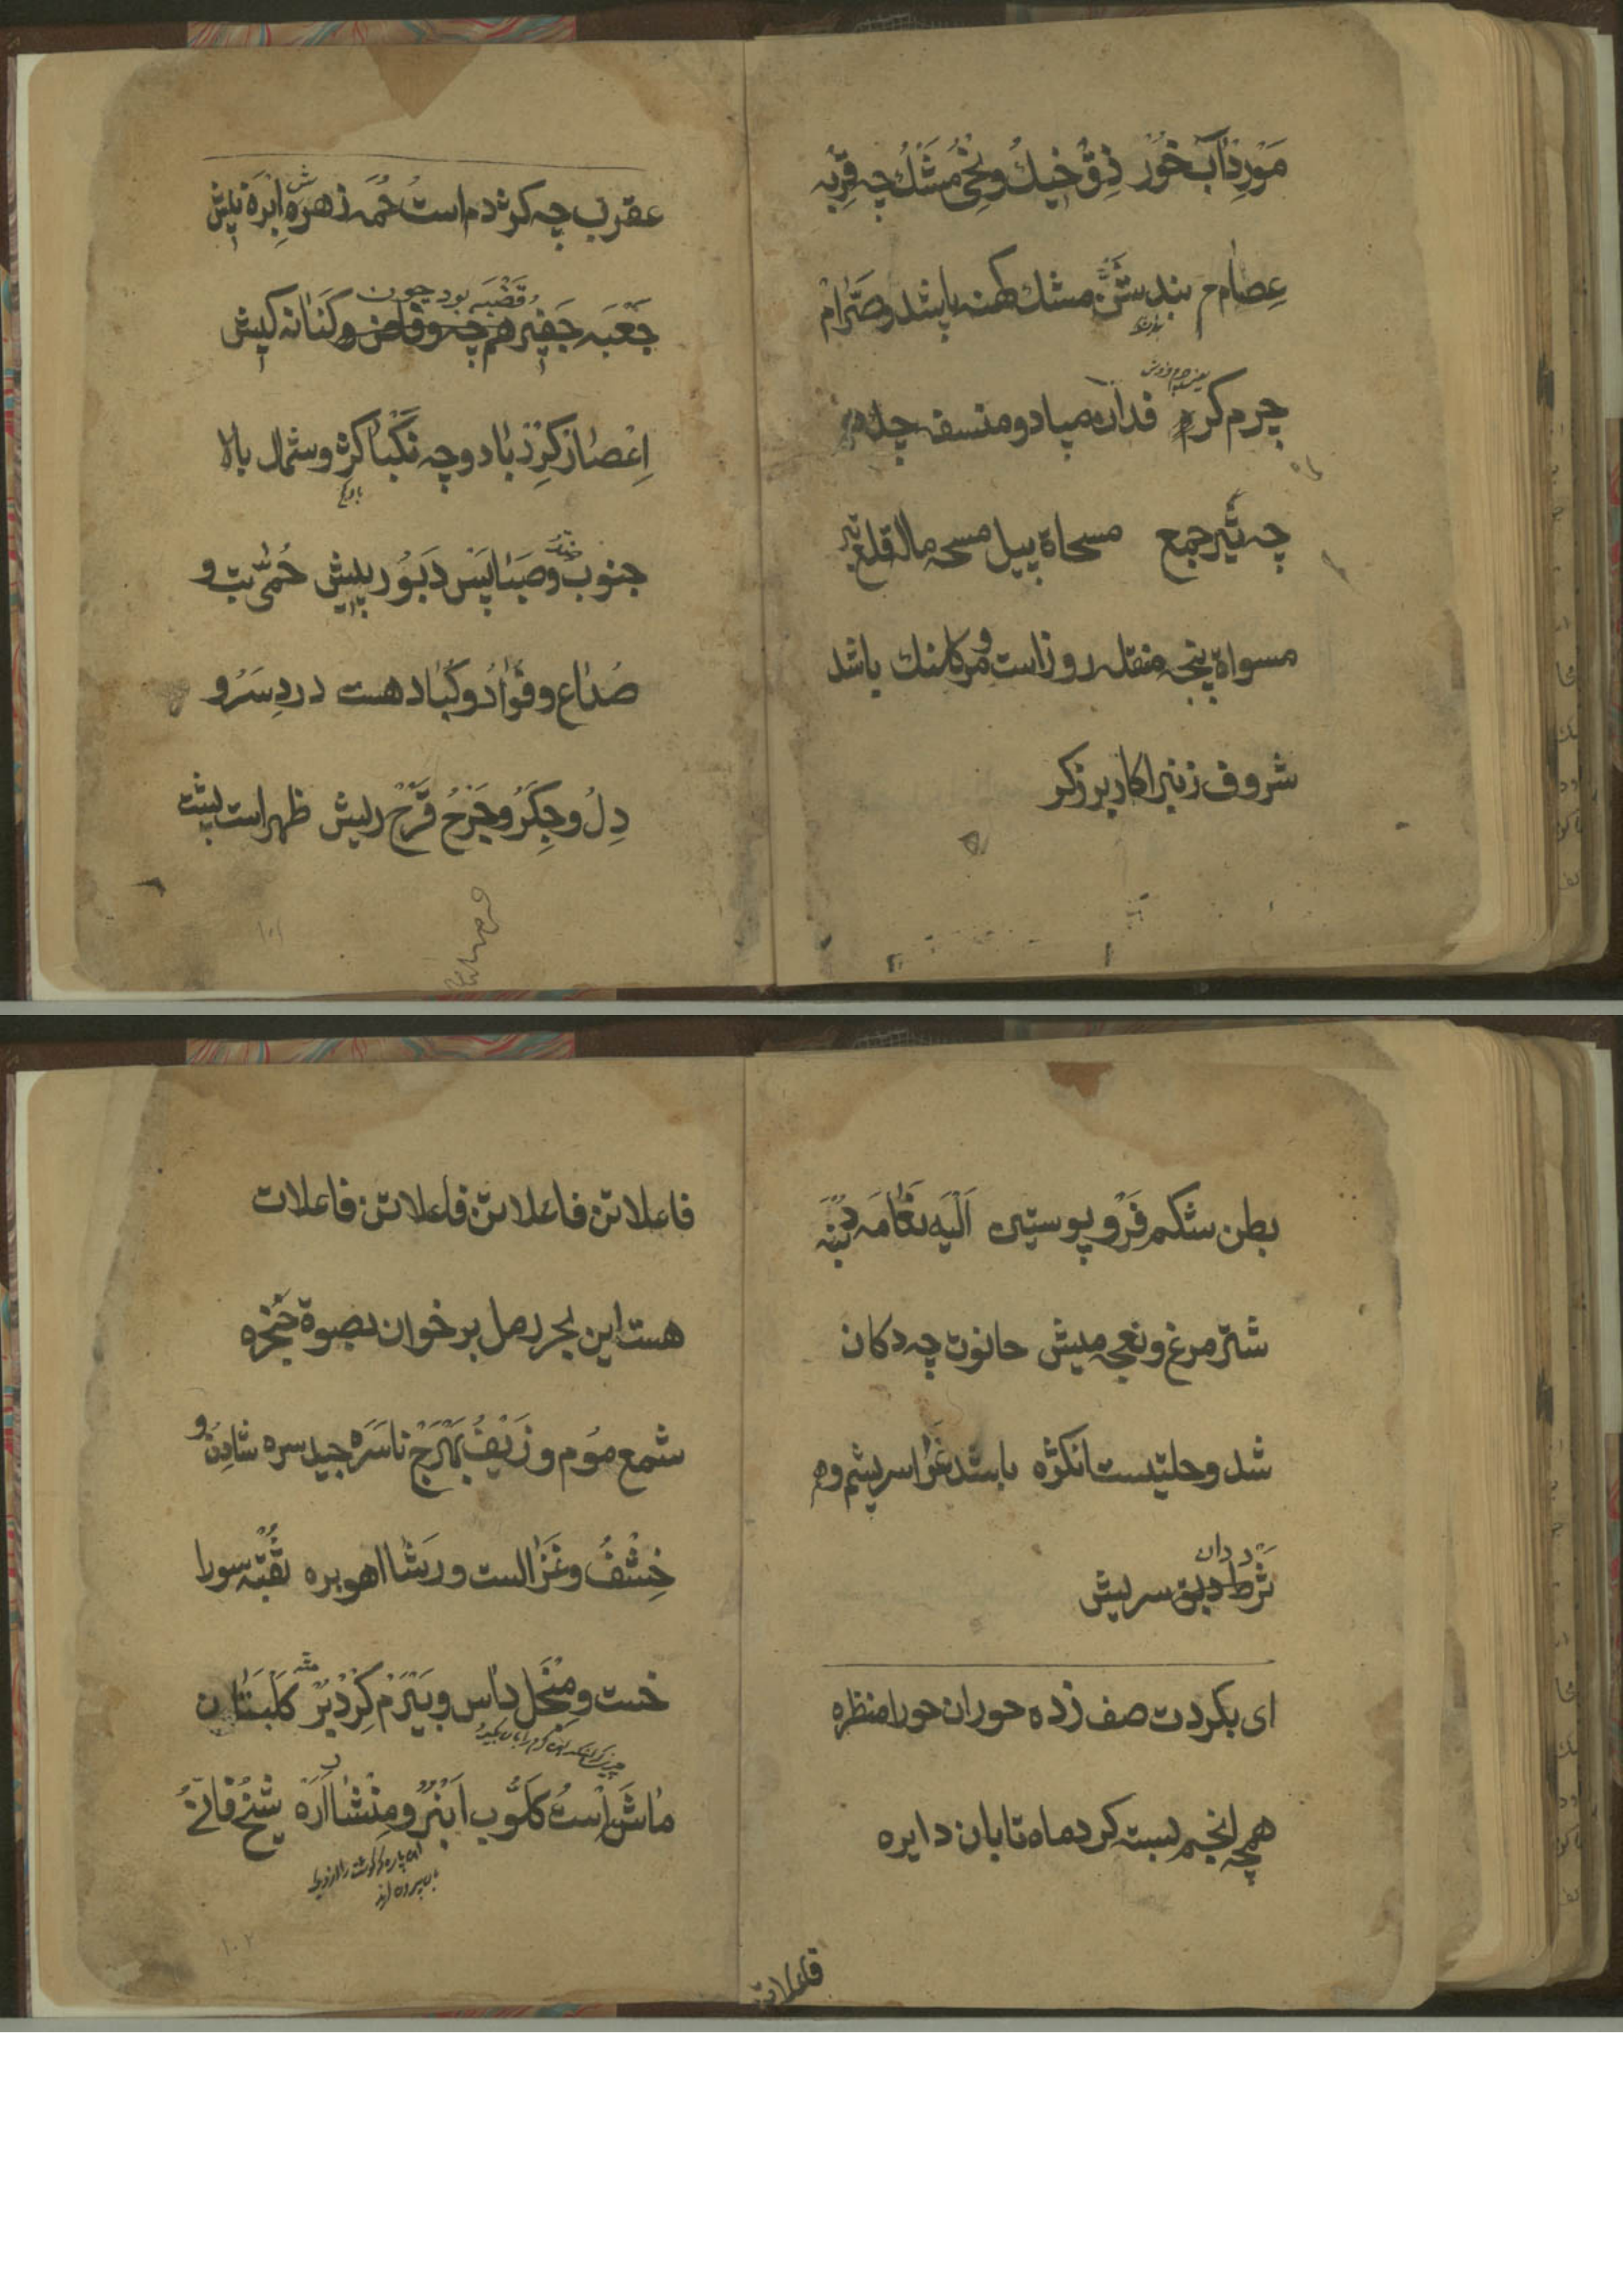 مورد آبخور زق خیك و نحی مشك چه قربه
عصام م بند شن مشك كهنه باشد و صرّام
یعنی چرم فروش
چرم كرم فدان میاد و منسفه چله
چه شیر جمع مسحاة بیل مسحه ماله قلع
مسواة پنجه منقله روزاست و مركلنك باشد
شروف زنبر اكاربرزكر
عقرب چه كژدم است حمه زهرش ابرة نیش
قضبه بود چون
جعبه جفیر هم چه وفاض و كنانه كیش
اعصار كرزباد و چه نكبا كژ و شمال بالا
جنوب و صبا پس دبور پیش حمی تب و
صداع و فواد و كباد هست درد سر و
دل و جكر و جرح قرح ریش ظهر است پشت
۱۰۱
بطن شكم فرو پوستین الیه نعامه دنبه
شتر مرغ و نعجه میش حانوت چه دكان
شد و حلتیست انكژه باشد غرا سریشم و هم
دان
ثرط دبق سریش
ای بكردت صف زده حوران حورا منظره
همچه انجم بسته كرد ماه تابان دایره
فاعلاتن
فاعلاتن فاعلاتن فاعلاتن فاعلات
هست این بحر رمل برخوان بصوة حنجره
شمع موم و زیف بهرج ناسره جید سره شادن و
خشف و غزالست و رشا اهوبره ثقبه سورا
خست و منجل داس و بیرم كردبر كلبتان
ماشه است كلوب انبر و منشار اره شیخ فانی
۱۰۲